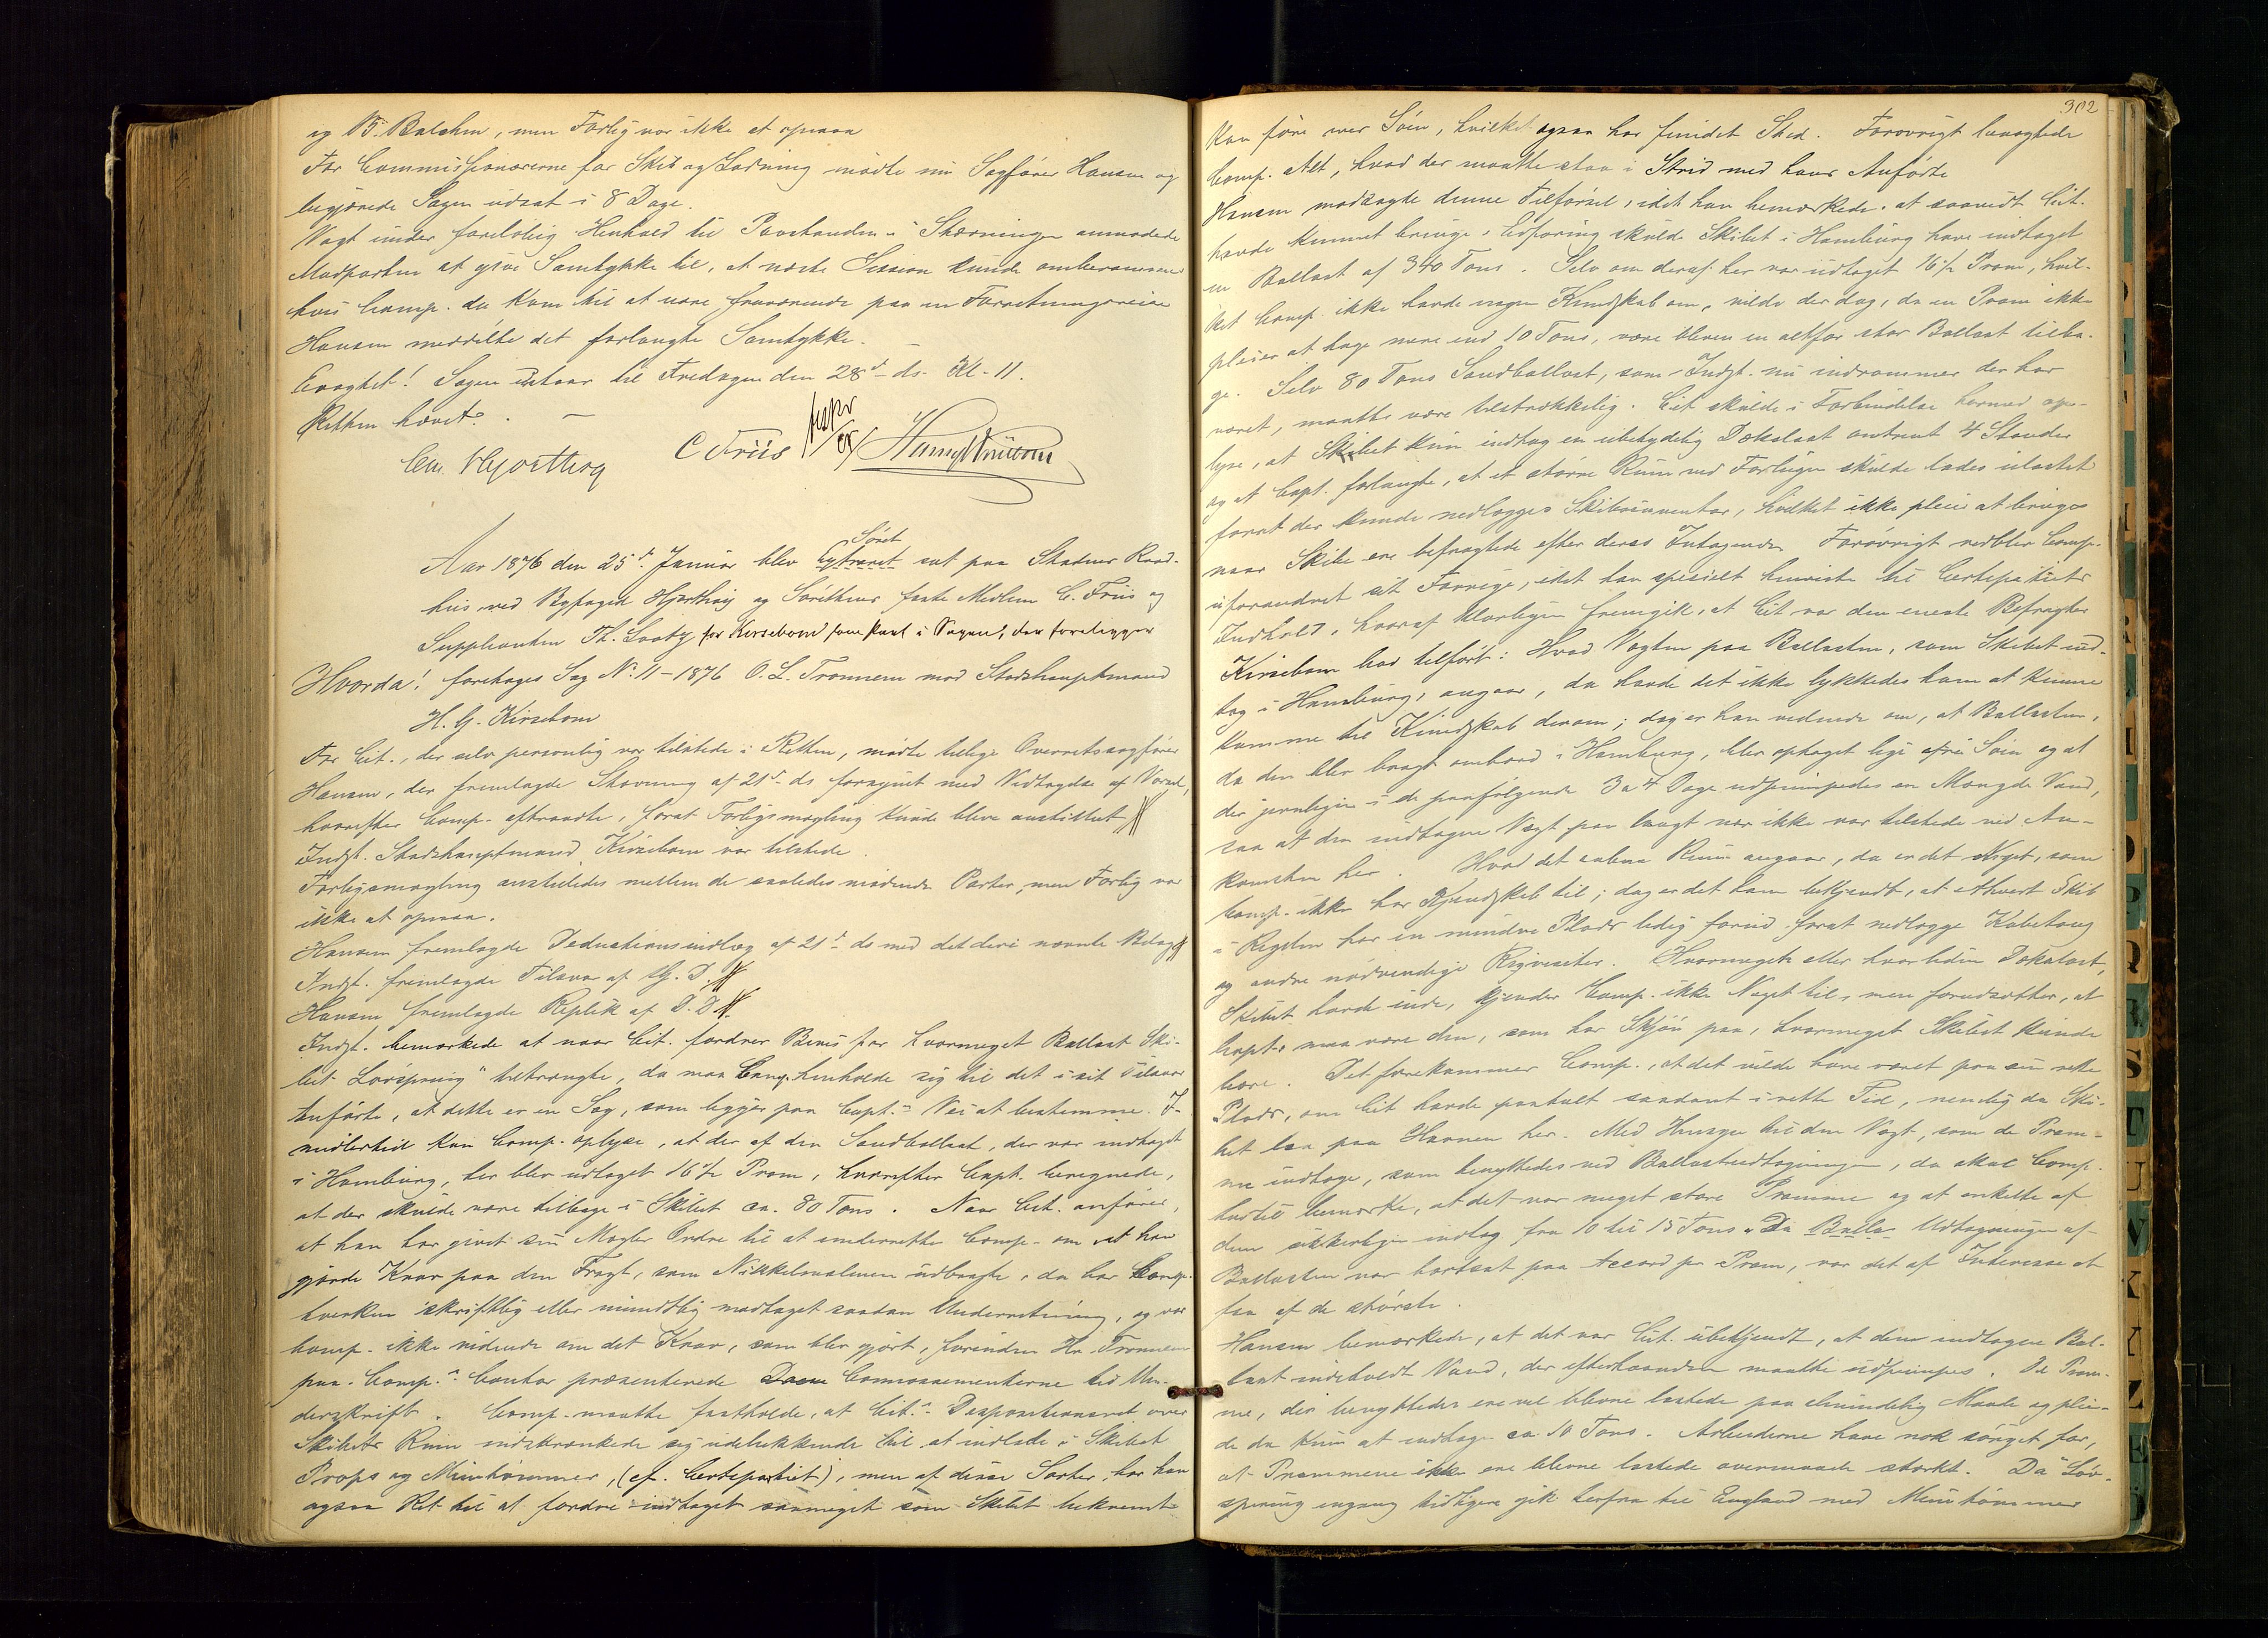 og B. Balchen, men Forlig var ikke at opnaa
For Commissionærerne for Skib og Ladning mødte nu Sagfører Hansen og
begjærede Sagen udsat i 8 Dage.
Vogt under foreløbig Henhold til Paastanden i Stævningen anmodede
Modparten at give Samtykke til, at næste Session kunde omberammes
hvis Comp. da kom til at være fraværende paa en Forretningsreise
Hansen meddelte det forlangte Samtykke.
Eragtet! Sagen udstaar til Fredagen den 28d ds. Kl. 11.
Retten hævet.
Chr. Hjorthøy C Friis
Aar 1876 den 25d Januar blev Bytinget Søret sat paa Stadens Raad-
hus ved Byfoged Hjorthøy og Sørettens faste Medlem C. Friis og
Suppleanten Th. Looby for Kirsebom som Part i Sagen, der foreligger
Hvorda! foretages Sag No 11-1876 O. L. Tronnem mod Stadshauptmand
H. G. Kirsebom
For Cit., der selv personlig var tilstede i Retten, mødte tillige Overretssagfører
Hansen, der fremlagde Stævning af 21d ds forsynet med Vedtagelse af Varsel,
hvorefter Comp. eftersaatte, forat Forligsmægling kunde blive anstillet
Indst. Stadshauptmand Kirsebom var tilstede.
Forligsmægling anstilledes mellem de saaledes mødende Parter, men Forlig var
ikke at opnaa.
Hansen fremlagde Deductionsindlæg af 21d ds med det deri nævnte Bilag
Indst. fremlagde Tilsvar af G. D.
Hansen fremlagde Replik af D. D.
Indst. bemærkede at naar Cit. fordrer Bevis for hvormeget Ballast Ski-
bet "Løvspring" tiltrængte, da maa Comp. henholde sig til det i sit Tilsvar
Anførte, at dette er en Sag, som ligger paa Capt.s Vei at bestemme. I-
midlertid kan Comp. oplyse, at der af den Sandballast, der var indtaget
i Hamburg, her blev udtaget 16½ Pram, hvorefter Capt. beregnede,
at der skulde være tilbage i Skibet ca. 80 Tons. Naar Cit. anfører,
at han har givet sin Mægler Ordre til at underrette Comp. om at han
gjorde Krav paa den Fragt, som Nikkelmalmen indbragte, da har Comp.
hverken skriftlig eller mundtlig modtaget saadan Underretning, og var
Comp. ikke vidende om det Krav, som blev gjort, forinden Hr. Tronnem
paa Comp.s Contor præsenterede Connossementerne til Un-
derskrift. Comp. maatte fastholde, at Cit.s Dispositionsret over
Skibets Rum indskrænkede sig udelukkende til at indlade i Skibet
Props og Minetømmer, (cf. Certepartiet), men af disse Sorter har han
ogsaa Ret til at fordre indtaget saameget som Skibet bekvemt
302
kan føre over Søen, hvilket ogsaa har fundet Sted. Forøvrigt benægtede
Comp. Alt, hvad der maatte staa i Strid med hans Anførte
Hansen modsagde denne Tilførsel, idet han bemærkede at saavidt Cit.
havde kunnet bringe i Erfaring skulde Skibet i Hamburg have indtaget
en Ballast af 340 Tons. Selv om deraf her var udtaget 16½ Pram, hvil-
ket Comp. ikke havde nogen Kundskab om, vilde der dog, da en Pram ikke
pleier at tage mere end 10 Tons, være bleven en altfor stor Ballast tilba-
ge. Selv 80 Tons Sandballast, som Indst. nu indrømmer der har
været, maatte være tilstrækkelig. Cit skulde i Forbindelse hermed op-
lyse, at Skibet kun indtog en ubetydelig Dækslast omtrent 4 Stander
og at Capt. forlangte, at et større Rum ved Forlugen skulde lades ulastet
forat der kunde nedlægges Skibsinventar, hvilket ikke pleier at bruges
naar Skibe ere befragtede efter deres Indtagende. Forøvrigt vedblev Comp.
uforandret sit Forrige, idet han specielt henviste til Certepartiets
Indhold, hvoraf klarligen fremgik, at Cit var den eneste Befragter
Kirsebom har tilført: Hvad Vægten paa Ballasten, som Skibet ind-
tog i Hamburg, angaar, da havde det ikke lykkedes ham at kunne
komme til Kundskab derom; dog er han vidende om, at Ballasten,
da den blev bragt ombord i Hamburg, blev optaget lige af Søen og at
der jevnligen i de paafølgende 3 a 4 Dage udpumpedes en Mængde Vand,
saa at den indtagne Vægt paa langt nær ikke var tilstede ved An-
komsten her. Hvad det aabne Rum angaar, da er det Noget, som
Comp. ikke har Kjendskab til; dog er det ham bekjendt, at ethvert Skib
i Regelen har en mindre Plads ledig forud forat nedlægge Kabeltoug
og andre nødvendige Rekvisiter. Hvormeget eller hvor liden Dækslast,
Skibet havde inde, kjender Comp. ikke Noget til, men forudsætter, at
Capt. maa være den, som har Skjøn paa, hvormeget Skibet kunde
bære. Det forekommer Comp., at det vilde have været paa sin rette
Plads, om Cit havde paatalt saadant i rette Tid, nemlig da Ski-
bet laa paa Havnen her. Med Hensyn til den Vægt, som de Pram-
me indtoge, som benyttedes ved Ballastudtagningen, da skal Comp.
hertil bemærke, at det var meget store Pramme og at enkelte af
dem sikkerligen indtog fra 10 til 15 Tons. Da Balla Udtagningen af
Ballasten var bortsat paa Accord pr Pram, var det af Interesse at
faa af de største.
Hansen bemærkede, at det var Cit. ubekjendt, at den indtagne Bal-
last indeholdt Vand, der efterhaanden maatte udpumpes. De Pram-
me, der benyttedes ere vel blevne lastede paa almindelig Maade og plei-
de da kun at indtage ca. 10 Tons. Arbeiderne have nok sørget for,
at Prammene ikke ere blevne lastede overmaade stærkt. Da "Løv-
spring engang tidligere gik herfra til England med Minetømmer